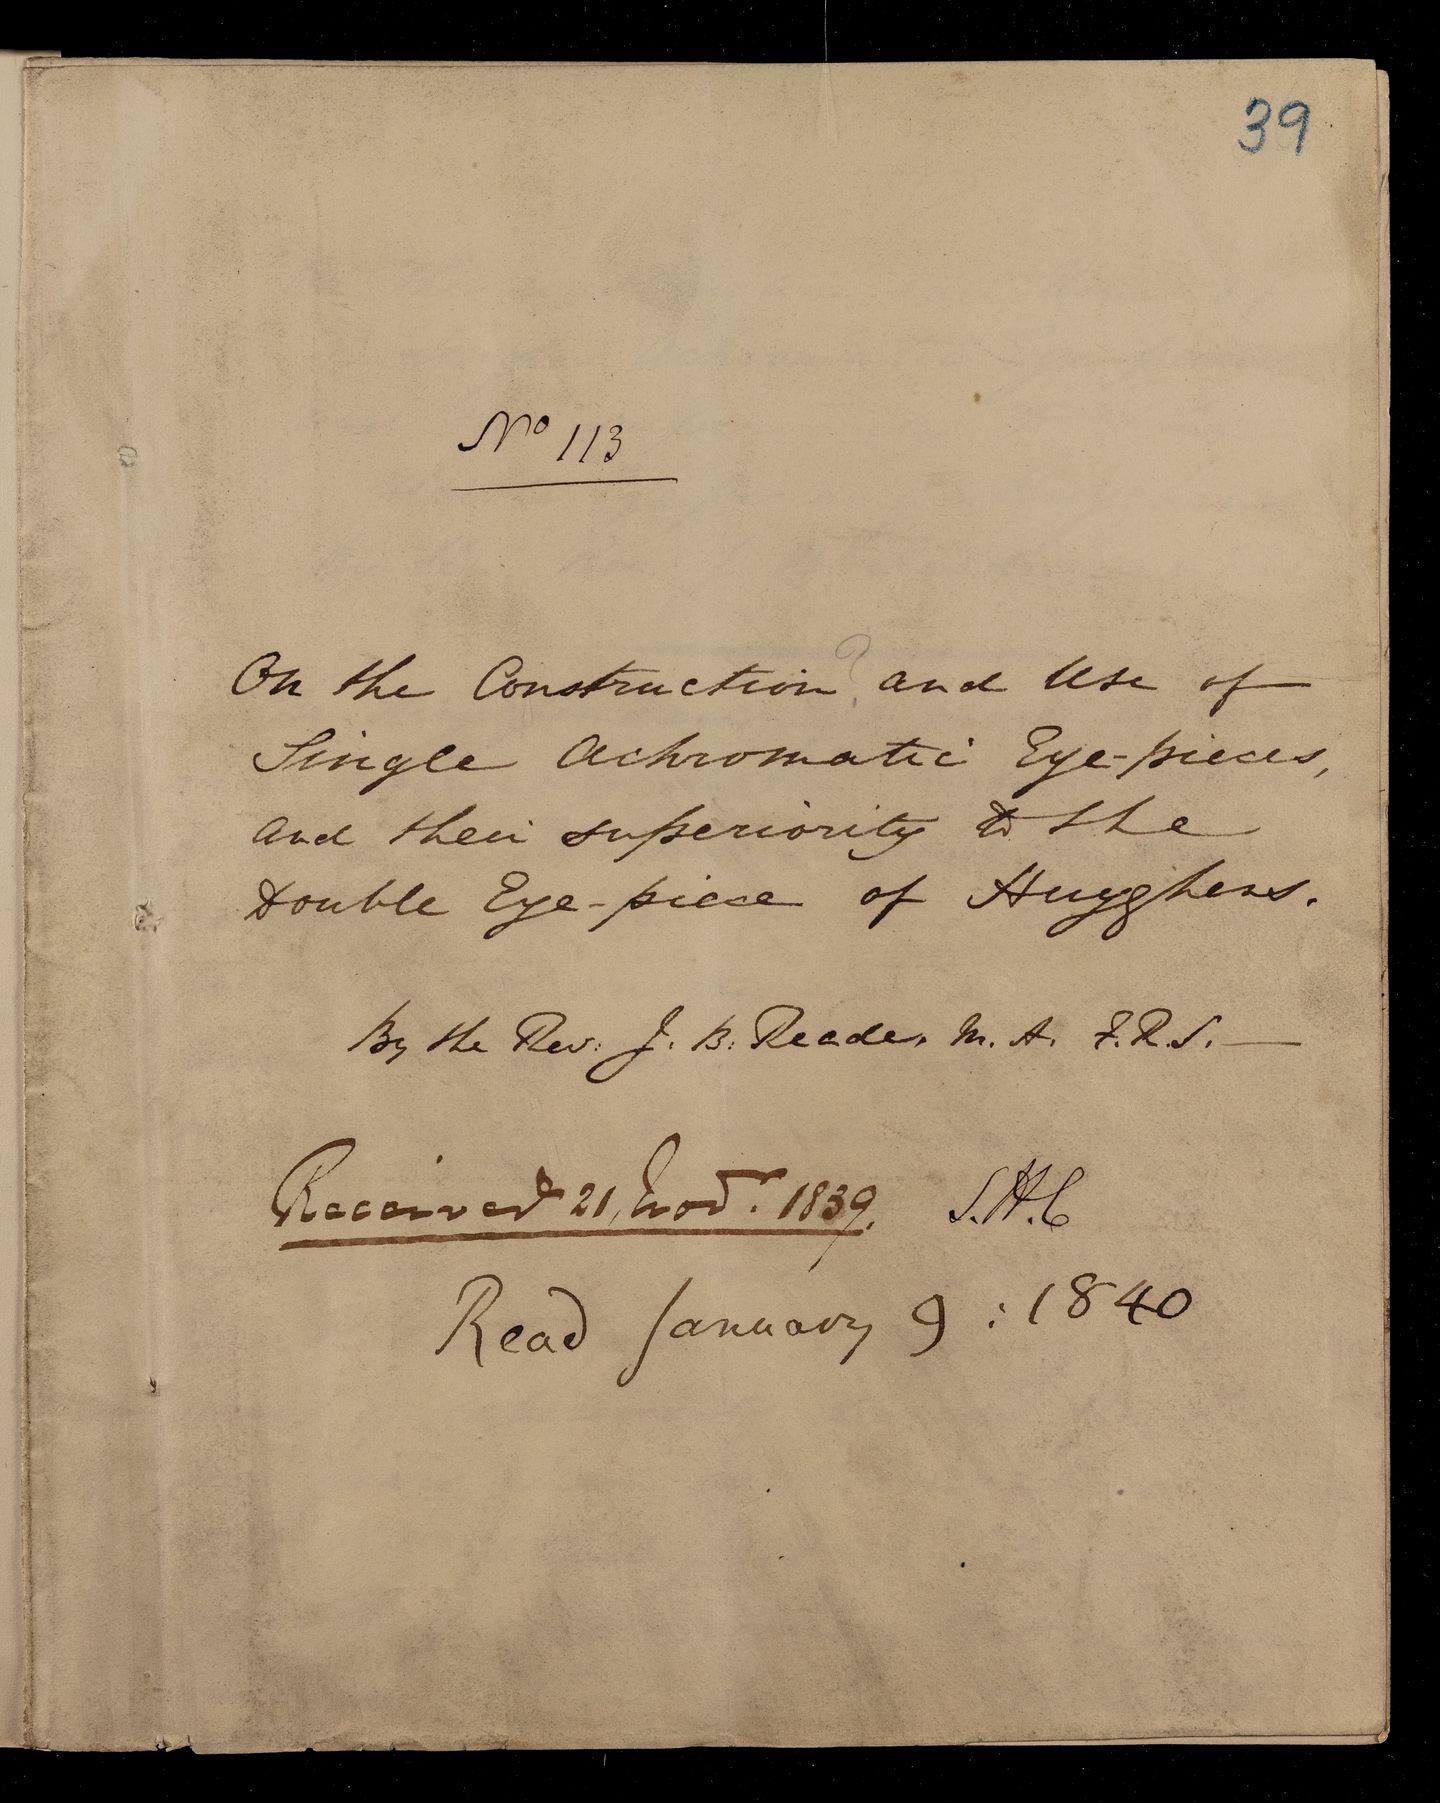 39
No 113
On the Construction? and Use of
Single Achromatic Eye-pieces,
and their superiority to the
Double Eye-piece of Huyghens.
By the Rev. J. B. Reade, M. A. F.R.S. —
Received 21, Novr. 1839. S.H.C
Read January 9 : 1840